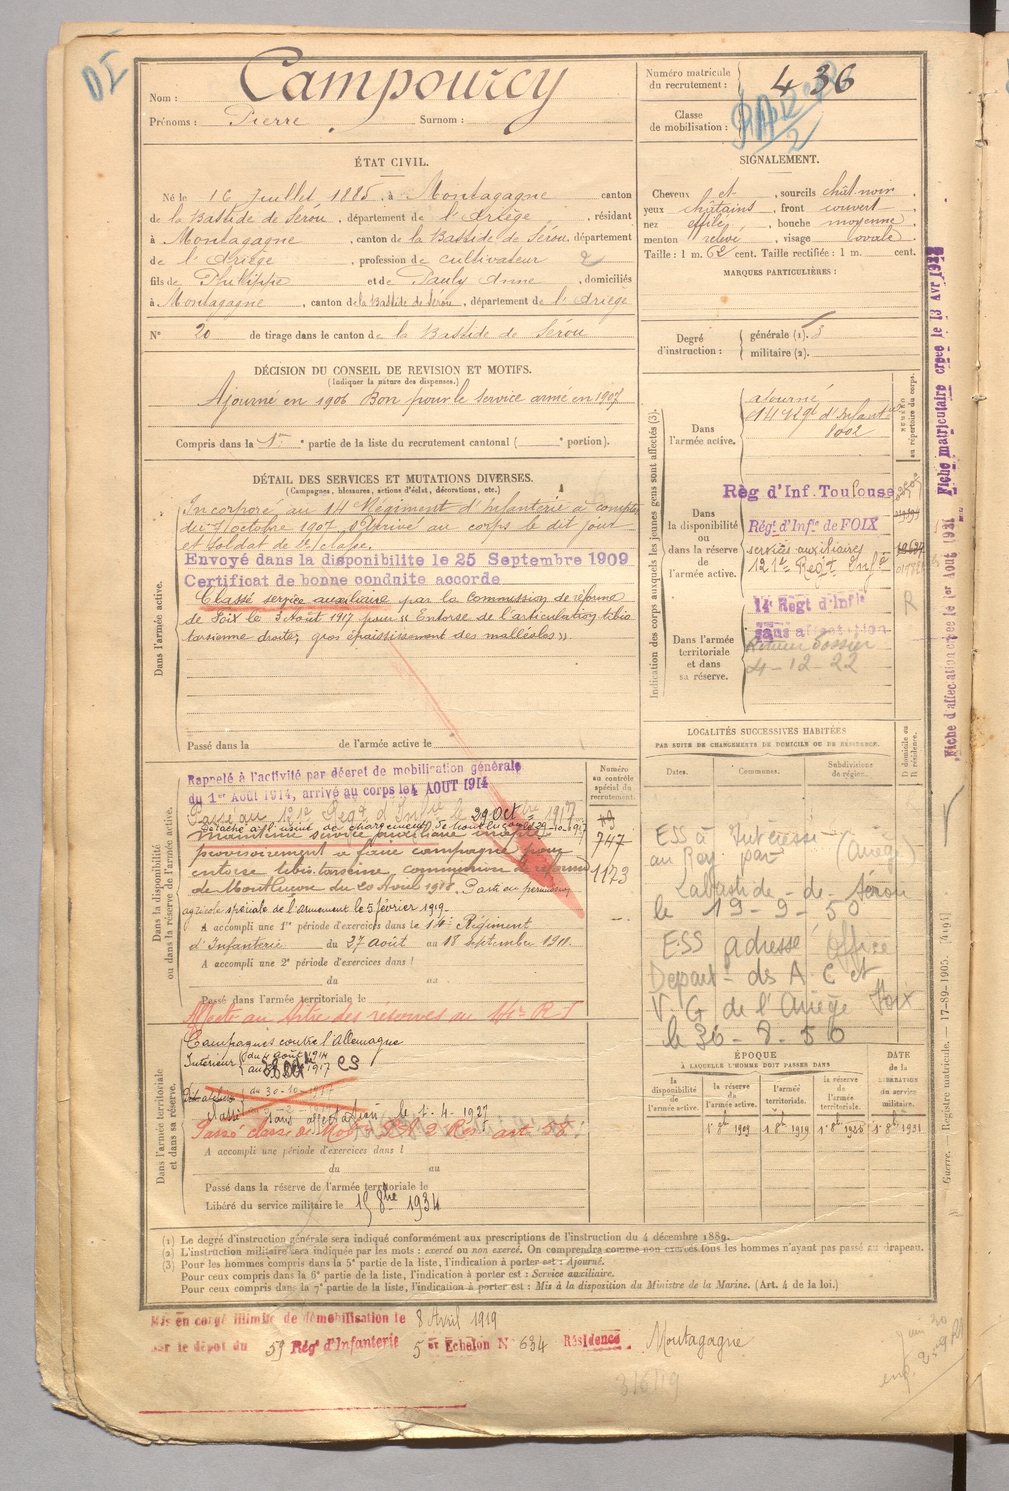 DI
Nom : Campourcy
Prénoms : Pierre Surnom :
Numéro matricule du recrutement : 436
Classe de mobilisation :
ÉTAT CIVIL.
Né le 16 Juillet 1885, à Montagagne canton
de la Bastide de Sérou, département de l'Ariège, résidant
à Montagagne, canton de la Bastide de Sérou, département
de l'Ariège, profession de cultivateur
fils de Philippe et de Pauly Anne, domiciliés
à Montagagne, canton de la Bastide de Sérou, département de l'Ariège
N° 20 de tirage dans le canton de la Bastide de Sérou
SIGNALEMENT.
Cheveux et, sourcils chât noir,
yeux châtains, front couvert
nez effilé, bouche moyenne
menton relevé, visage ovale.
Taille : 1 m. 62 cent. Taille rectifiée : 1 m. cent.
MARQUES PARTICULIÈRES :
Degré d'instruction : générale (1). 3
militaire (2).
DÉCISION DU CONSEIL DE REVISION ET MOTIFS.
(Indiquer la nature des dispenses.)
Ajourné en 1906 Bon pour le service armé en 1907
Compris dans la 1re partie de la liste du recrutement cantonal ( e portion).
DÉTAIL DES SERVICES ET MUTATIONS DIVERSES.
(Campagnes, blessures, actions d'éclat, décorations, etc.)
Dans l'armée active.
Incorporé au 14 Régiment d'Infanterie à compter
du 7 octobre 1907. Arrivé au corps le dit jour
et soldat de 2e classe.
Envoyé dans la disponibilite le 25 Septembre 1909
Certificat de bonne conduite accorde
Classé service auxiliaire par la commission de réforme
de Foix le 3 Août 1917 pour "Entorse de l'articulation tibio
tarsienne droite, gros épaississement des malléoles".
Passé dans la de l'armée active le
Indication des corps auxquels les jeunes gens sont affectés (3).
NUMÉRO au répertoire du corps.
Dans l'armée active.
Ajourné
14 Rgt d'Infant
8002
Dans la disponibilité ou dans la réserve de l'armée active.
Règ d'Inf. Toulouse
Régt d'Infie de FOIX
services auxiliaires
121e Regt Infie
14e Regt d'Infie
sans affectation
Dans l'armée territoriale et dans sa réserve.
Retour Dossier
4-12-22
R
Fiche matriculaire créée le 13 Avr
Fiche d'affectation créée le 1er Aout 1931
Dans la disponibilité ou dans la réserve de l'armée active.
Rappelé à l'activité par décret de mobilisation générale
du 1er Août 1914, arrivé au corps le 4 AOUT 1914
Passé au 121e Regt d'Infie le 29 Oct 1917
Détaché à l'usine de chargement de Montluçon le 29-10-1917
Maintenu service auxiliaire inapte
provisoirement à faire campagne pour
entorse tibio tarsienne, commission de réforme
de Montluçon du 20 Avril 1918. Parti en permission
agricole spéciale de l'armement le 5 février 1919.
A accompli une 1re période d'exercices dans le 14e Régiment
d'Infanterie du 27 Août au 18 septembre 1911.
A accompli une 2e période d'exercices dans l
du au
Passé dans l'armée territoriale le
Affecté au Titre des réserves au R I
Numéro au contrôle spécial du recrutement.
747
1173
LOCALITÉS SUCCESSIVES HABITÉES
PAR SUITE DE CHANGEMENTS DE DOMICILE OU DE RÉSIDENCE.
Dates. Communes. Subdivisions de région. D domicile ou R résidence.
ESS à
au par (Ariège)
Labastide-de-Sérou
le 19-9-50
ESS adressé Office
Depart- des A C et
V. G de l'Ariège Foix
Dans l'armée territoriale et dans sa réserve.
Campagnes contre l'Allemagne
Intérieur du 4 Août 1914
au 1917 CS
du 30-10-1917
Classé sans affectation le 1-4-1927
Passé classe de Mob 2 Rés art 58
A accompli une période d'exercices dans l
du au
Passé dans la réserve de l'armée territoriale le
Libéré du service militaire le 15 8bre 1934
ÉPOQUE
À LAQUELLE L'HOMME DOIT PASSER DANS
DATE DE LA LIBÉRATION du service militaire.
la disponibilité de l'armée active. la réserve de l'armée active. l'armée territoriale. la réserve de l'armée territoriale.
1 8b 1909 1 8b 1919 1 8b 1925 1 8b 1931
Guerre. — Registre matricule. — 17-89-1905. [4194]
(1) Le degré d'instruction générale sera indiqué conformément aux prescriptions de l'instruction du 4 décembre 1889.
(2) L'instruction militaire sera indiquée par les mots : exercé ou non exercé. On comprendra comme non exercés tous les hommes n'ayant pas passé au drapeau.
(3) Pour les hommes compris dans la 5e partie de la liste, l'indication à porter est : Ajourné.
Pour ceux compris dans la 6e partie de la liste, l'indication à porter est : Service auxiliaire.
Pour ceux compris dans la 7e partie de la liste, l'indication à porter est : Mis à la disposition du Ministre de la Marine. (Art. 4 de la loi.)
Mis en congé illimité de démobilisation le 8 Avril 1919
par le dépot du 59 Rég d'Infanterie 5 Echelon N° 634 Résidence Montagagne
3/6/19